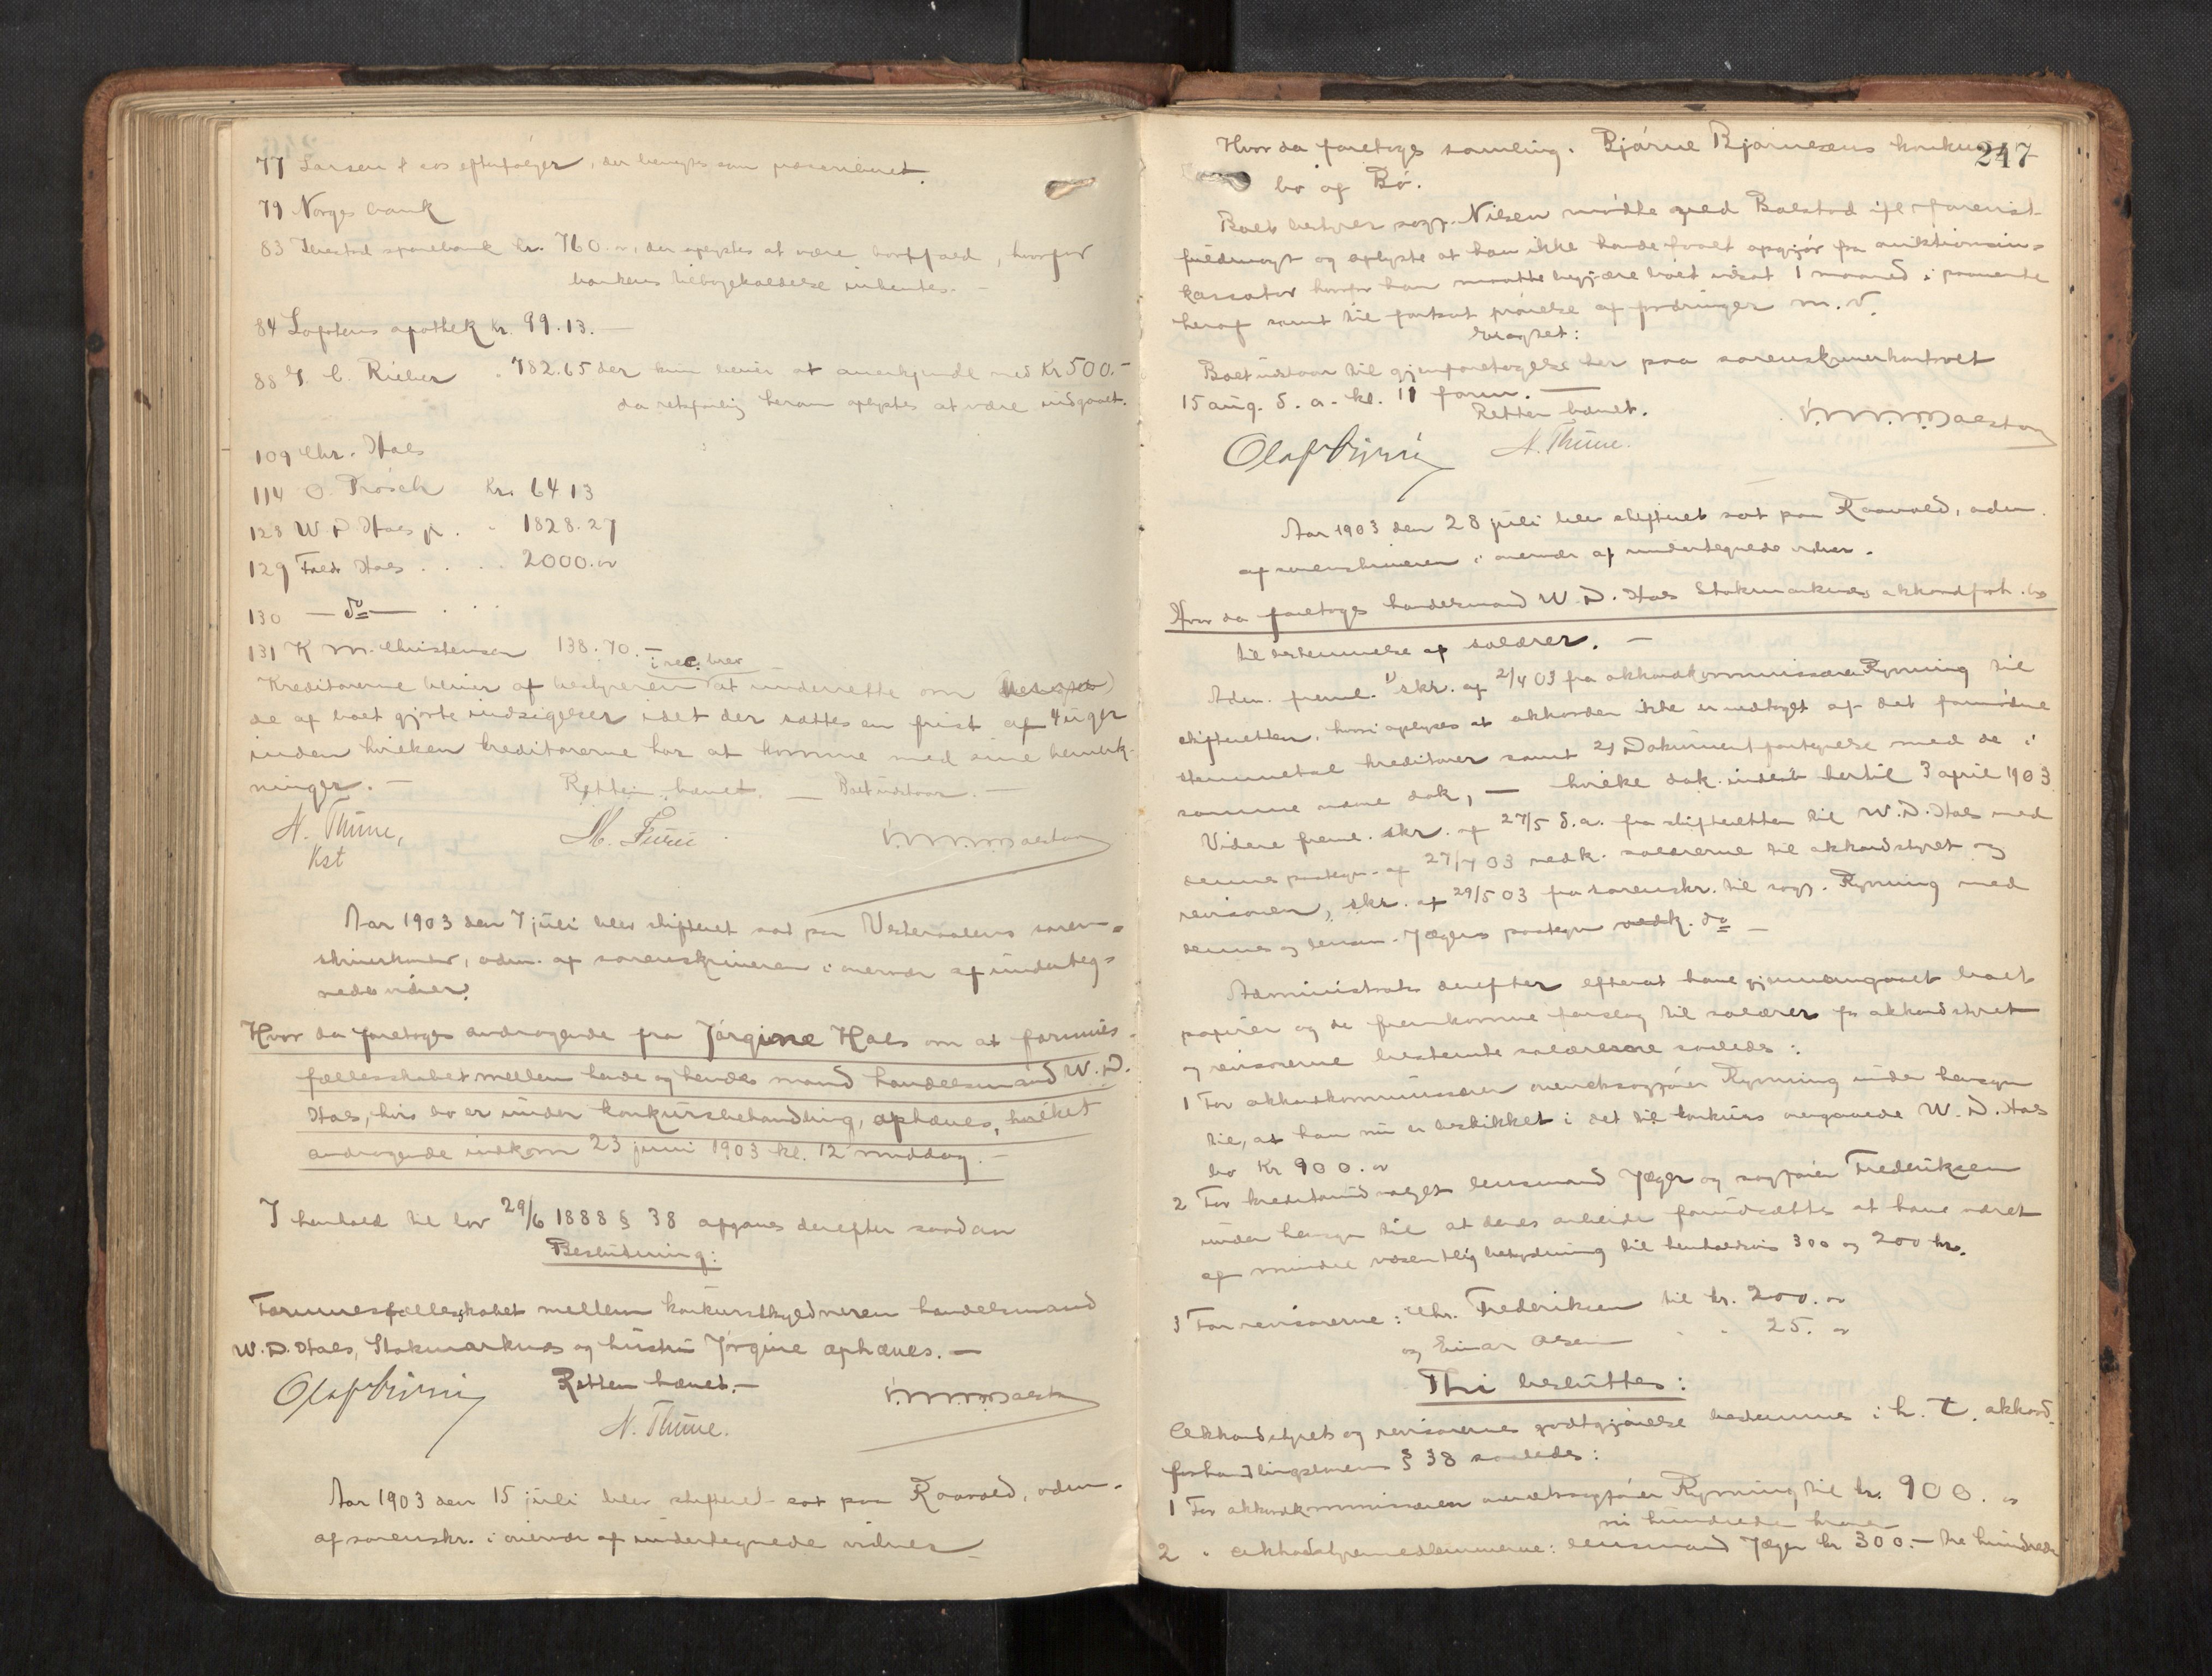 77 Larsen & søs efterfølger, der benegtes som præscriberet.
79 Norges bank
83 Ibestad sparebank kr. 760.00, der oplystes at være bortfald, hvorfor
bankens tilbagekaldelse indentes. —
84 Lofotens apothek kr. 99.13. —
88 G. C. Rieber " 782.65 der kun bliver at anerkjende med Kr 500.-
da retsforlig herom oplystes at være indgaaet.
109 Chr. Hals
114 O. Prösch Kr. 64 13
128 W. D Hals jr. " 1828.27
129 Foedr Hals . . . 2000.00
130 — do — . . .
131 K M. Christensen 138.70. —
i rec. brev
Kreditorerne bliver af bestyreren at underrette om
de af boet gjorte indsigelser idet der sættes en frist af 4 uger
inden hvilken kreditorerne har at komme med sine bemerk-
ninger. — Retten hævet. — Boet udstaar. —
N. Thune,
Kst
Aar 1903 den 7 juli blev skifteret sat paa Vesteraalens soren-
skriverkontor, adm. af sorenskriveren i overvær af underteg-
nede vidner.
Hvor da foretoges andragende fra Jørgine Hals om at formues-
fællesskabet mellem hende og hendes mand handelsmand W. D.
Hals, hvis bo er under konkursbehandling, ophæves, hvilket
andragende indkom 23 juni 1903 kl. 12 middag. —
I henhold til lov 29/6 1888 § 38 afgaves derefter saadan
Beslutning:
Formuesfællesskabet mellem konkursskyldneren handelsmand
W. D. Hals, Stokmarknes og hustru Jørgine ophæves. —
Retten hævet. —
N. Thune.
Aar 1903 den 15 juli blev skifteret sat paa Raavold, adm.
af sorenskr. i overvær af undertegnede vidner
247
Hvor da foretoges samling i Bjarne Bjarnesens konkurs
bo af Bø.
Boets bestyrer sagf. Nilsen mødte ved Balstad ifl. forevist
fuldmagt og oplyste at han ikke havde faaet opgjør fra auktionsin-
kassator hvorfor han maatte begjære boet udsat 1 maaned i paavente
heraf samt til fortsat prøvelse af fordringer m. v.
Eragtet:
Boet udstaar til gjenforetagelse her paa sorenskriverkontoret
15 aug. d. a. kl. 11 form. —
Retten hævet.
N. Thune.
Aar 1903 den 28 juli blev skifteret sat paa Raavold, adm.
af sorenskriveren i overvær af undertegnede vidner.
Hvor da foretoges handelsmand W. D. Hals Stokmarknes akkordforh. bo
til bestemmelse af salærer. —
Adm. freml. 1) skr. af 2/4 03 fra akkordkommissær Rynning til
skifteretten, hvori oplyses at akkorden ikke er vedtaget af det fornødne
stemmetal kreditorer samt 2) Dokumentfortegnelse med de i
samme nævnte dok, — hvilke dok. indkom hertil 3 april 1903.
Videre freml. skr. af 27/5 d.a. fra skifteretten til W. D. Hals med
dennes paategn. af 27/7 03 vedk. salærerne til akkordstyret og
revisorer, skr. af 29/5 03 fra sorenskr. til sagf. Rynning med
dennes og lensm. Jægers paategn vedk. do —
Administrator derefter efterat have gjennemgaaet boets
papirer og de fremkomne forslag til salærer for akkordstyret
og revisorerne bestemte salærerne saaledes:
1 For akkordkommissæren overretssagfører Rynning under hensyn
til, at han nu er beskikket i det til konkurs overgaaede W. D. Hals
bo Kr 900.00
2 For kreditorudvalget lensmand Jæger og sagfører Frederiksen
under hensyn til at deres arbeide forudsættes at have været
af mindre væsentlig betydning til henholdsvis 300 og 200 kr.
3 For revisorerne: Chr. Frederiksen til kr. 200.00
og Einar Olsen " " 25.00
Thi besluttes:
Akkordstyrets og revisorernes godtgjørelse bestemmes i h. t. akkord-
forhandlingslovens § 38 saaledes:
1 For akkordkommissæren overretssagfører Rynning til kr. 900.00
ni hundrede kroner
2 " akkordstyremedlemmerne: lensmand Jæger kr 300.- tre hundrede